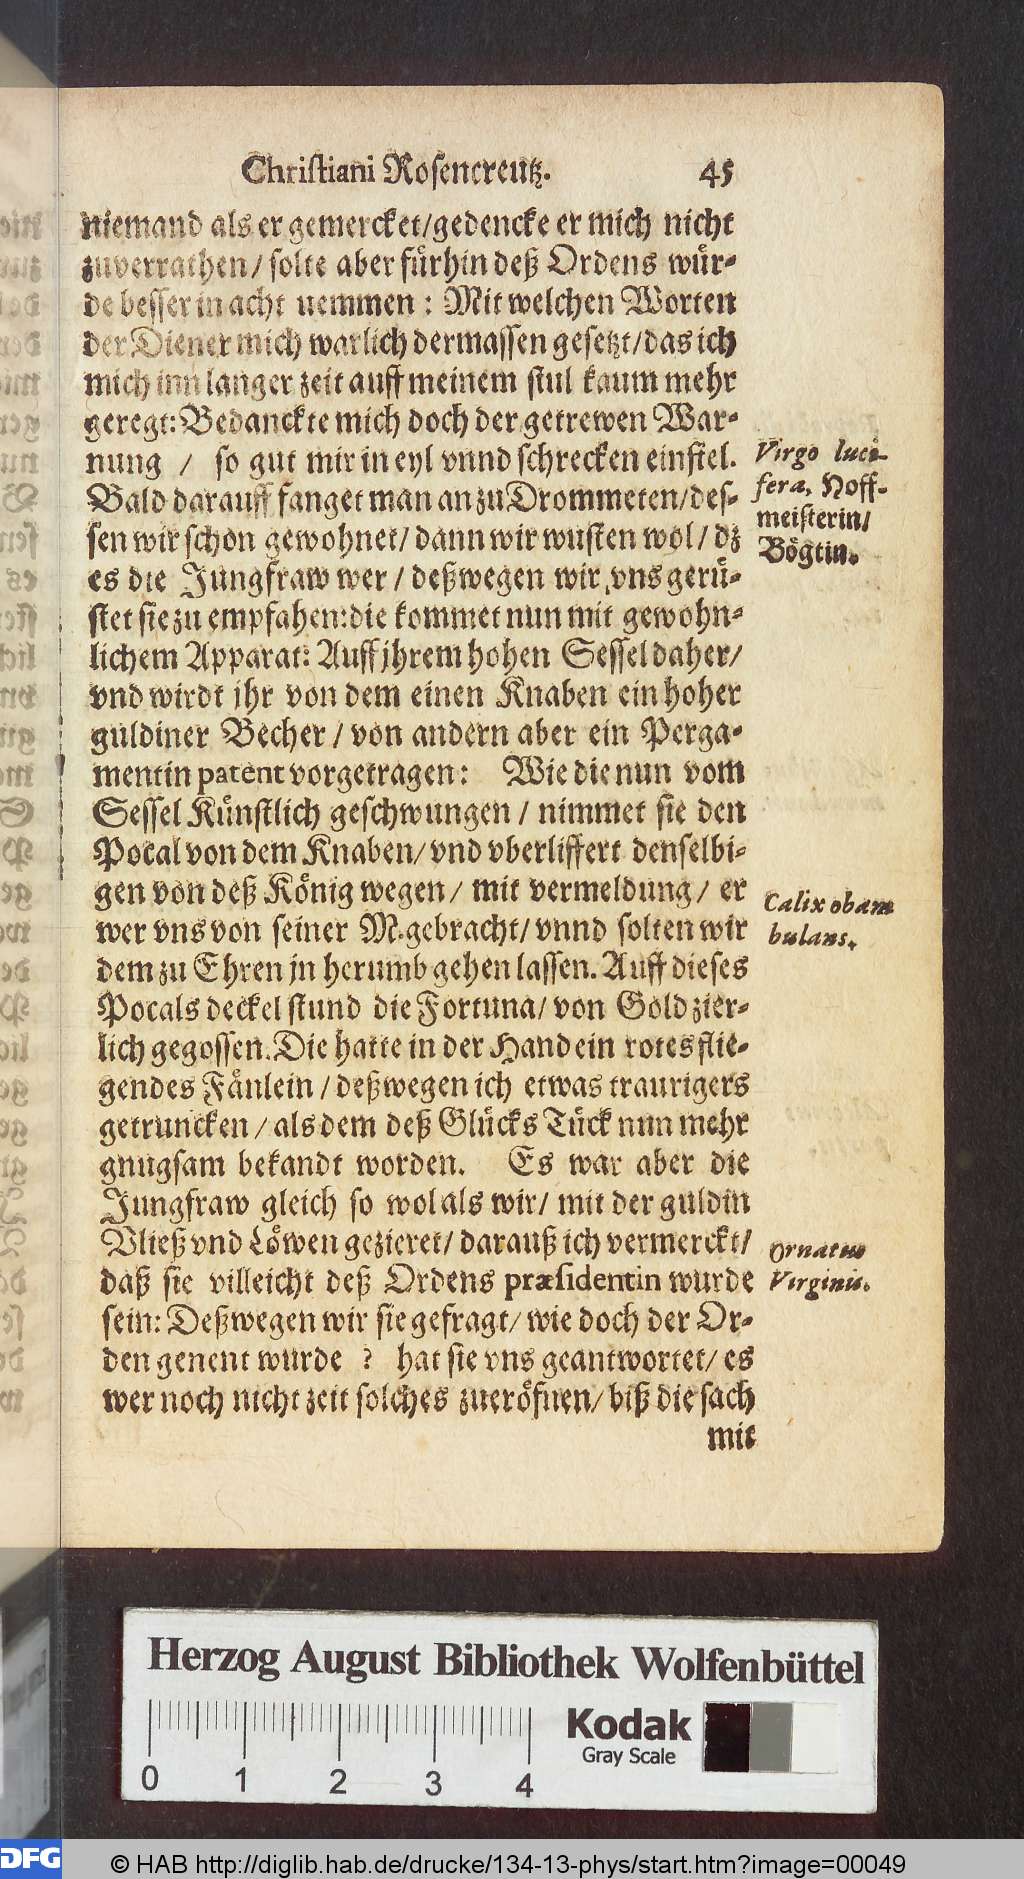 Christiani Rosencreutz. 45
niemand als er gemercket/gedencke er mich nicht
zuverrathen/ solte aber fürhin deß Ordens wür-
de besser in acht nemmen: Mit welchen Worten
der Diener mich warlich dermassen gesetzt/das ich
mich inn langer zeit auff meinem stul kaum mehr
geregt: Bedanckte mich doch der getrewen War-
nung / so gut mir in eyl vnnd schrecken einfiel.
Bald darauff fanget man an zu Drommeten/des-
sen wir schon gewohnet/dann wir wusten wol/ dz
es die Jungfraw wer/ deßwegen wir vns gerü-
stet sie zu empfahen: die kommet nun mit gewohn-
lichem Apparat: Auff jhrem hohen Sessel daher/
vnd wirdt jhr von dem einen Knaben ein hoher
guldiner Becher/ von andern aber ein Perga-
mentin patent vorgetragen: Wie die nun vom
Sessel Künstlich geschwungen/ nimmet sie den
Pocal von dem Knaben/ vnd vberliffert denselbi-
gen von deß König wegen/ mit vermeldung/ er
wer vns von seiner M. gebracht/ vnnd solten wir
dem zu Ehren jn herumb gehen lassen. Auff dieses
Pocals deckel stund die Fortuna/ von Gold zier-
lich gegossen. Die hatte in der Hand ein rotes flie-
gendes Fänlein/ deßwegen ich etwas traurigers
getruncken/ als dem deß Glücks Tück nun mehr
gnugsam bekandt worden. Es war aber die
Jungfraw gleich so wol als wir/ mit der guldin
Vließ vnd Löwen gezieret/ darauß ich vermerckt/
daß sie villeicht deß Ordens præsidentin wurde
sein: Deßwegen wir sie gefragt/ wie doch der Or-
den genent wurde ? hat sie vns geantwortet/ es
wer noch nicht zeit solches zueröfnen/ biß die sach
mit
Virgo luci-
fera, Hoff-
meisterin/
Vögtin.
Calix obam
bulans.
Ornatus
Virginis.
Herzog August Bibliothek Wolfenbüttel
0 1 2 3 4
Kodak
Gray Scale
DFG © HAB http://diglib.hab.de/drucke/134-13-phys/start.htm?image=00049